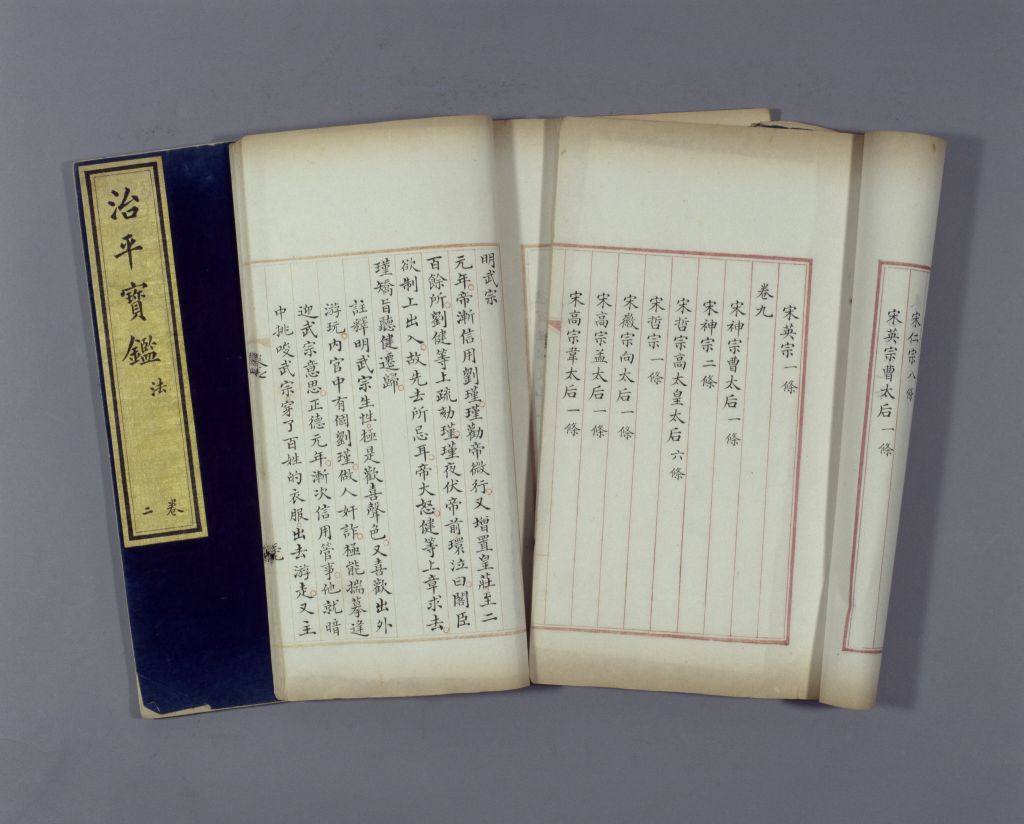 治平寶鑑
法
卷二
明武宗
元年。帝漸信用劉瑾。瑾勸帝微行。又增置皇莊至二
百餘所。劉健等上疏劾瑾。瑾夜伏帝前環泣曰。閣臣
欲制上出入。故先去所忌耳。帝大怒。健等上章求去。
瑾矯旨聽健遷歸。
註釋明武宗生性。極是歡喜聲色。又喜歡出外
游玩。內官中有個劉瑾。做人奸詐。極能揣摹逢
迎武宗意思。正德元年。漸次信用管事。他就暗
中挑唆武宗。穿了百姓的衣服出去游走。又主
宋仁宗八條
宋英宗曹太后一條
宋英宗一條
卷九
宋神宗曹太后一條
宋神宗二條
宋哲宗高太皇太后六條
宋哲宗一條
宋徽宗向太后一條
宋高宗孟太后一條
宋高宗韋太后一條